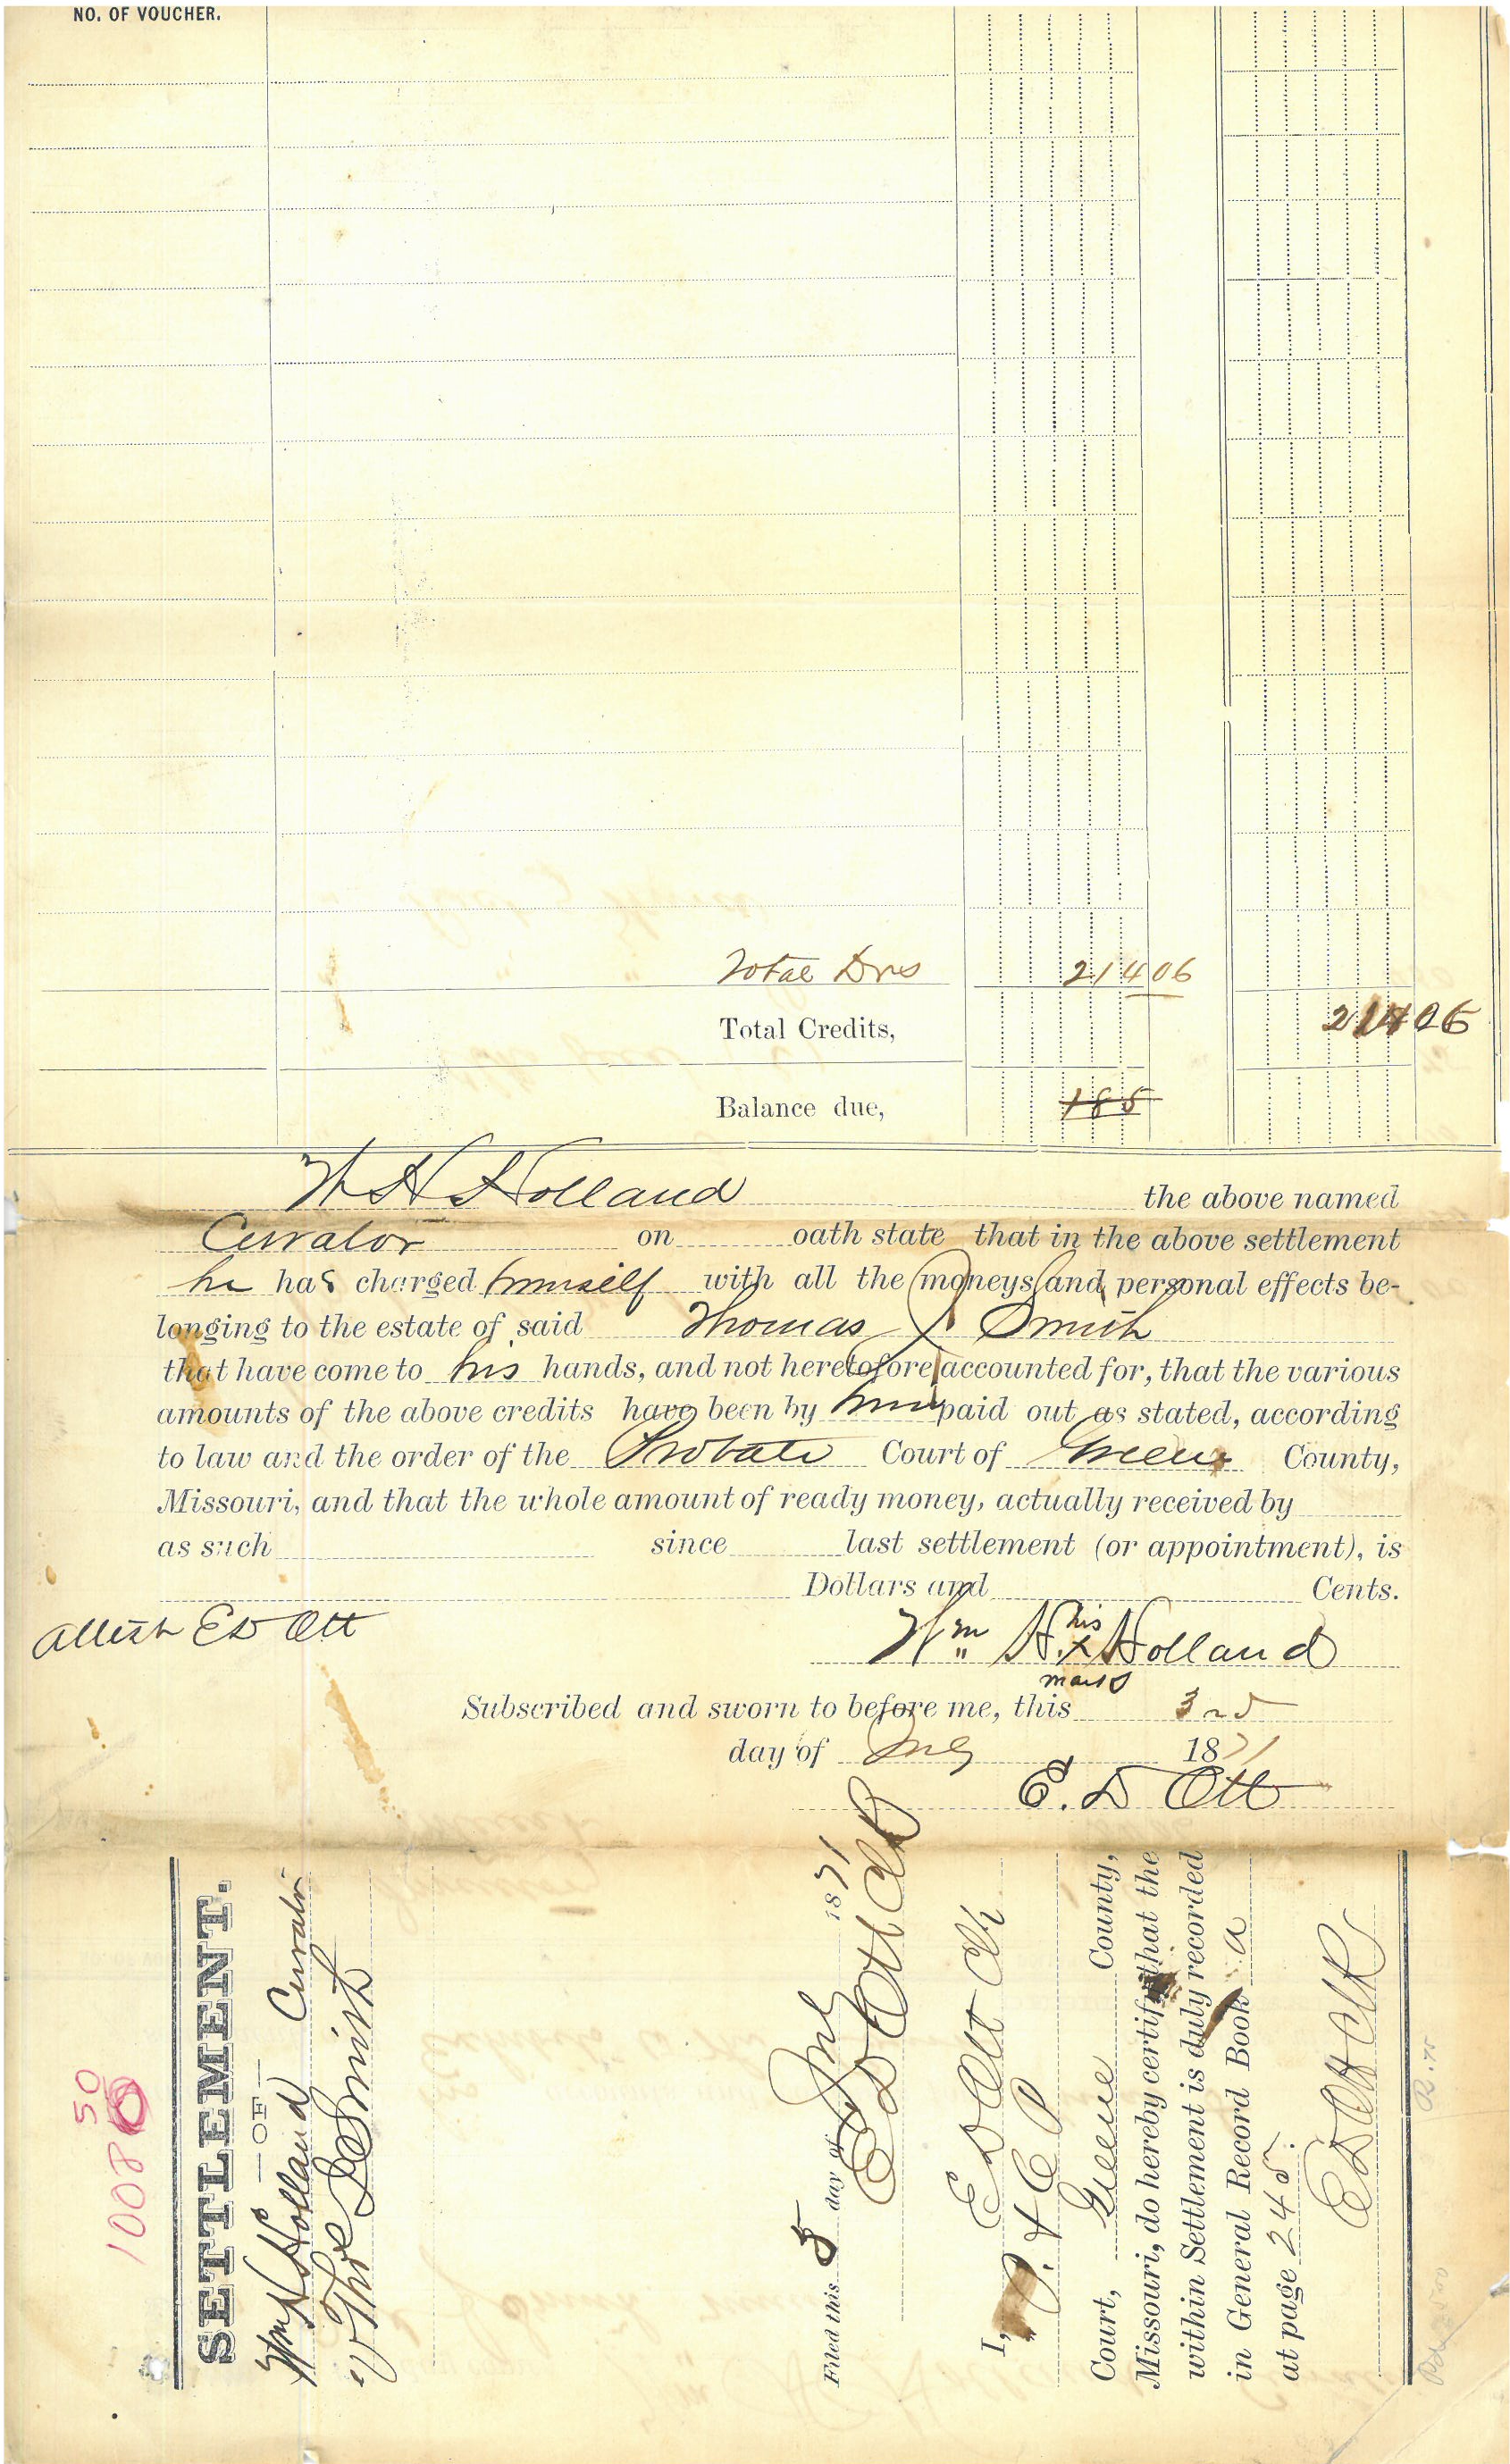 NO. OF VOUCHER.
Total Drs 214 06
Total Credits, 214 06
Balance due, 185
W H Holland the above named
Curator on oath state that in the above settlement
he has charged himself with all the moneys and personal effects be-
longing to the estate of said Thomas J Smith
that have come to his hands, and not heretofore accounted for, that the various
amounts of the above credits have been by him paid out as stated, according
to law and the order of the Probate Court of Greene County,
Missouri, and that the whole amount of ready money, actually received by
as such since last settlement (or appointment), is
Dollars and Cents.
Attest E D Ott
Wm H. his x mark Holland
Subscribed and sworn to before me, this 3rd
day of July 1871
E. D Ott
50
1008
SETTLEMENT.
—OF—
Wm H Holland Curator
Thos Smith
Filed this 5 day of July 1871
E D Ott Clk
I, E D Ott Clk
Court, Greene County,
Missouri, do hereby certify that the
within Settlement is duly recorded
in General Record Book a
at page 245.
E D Ott Clk